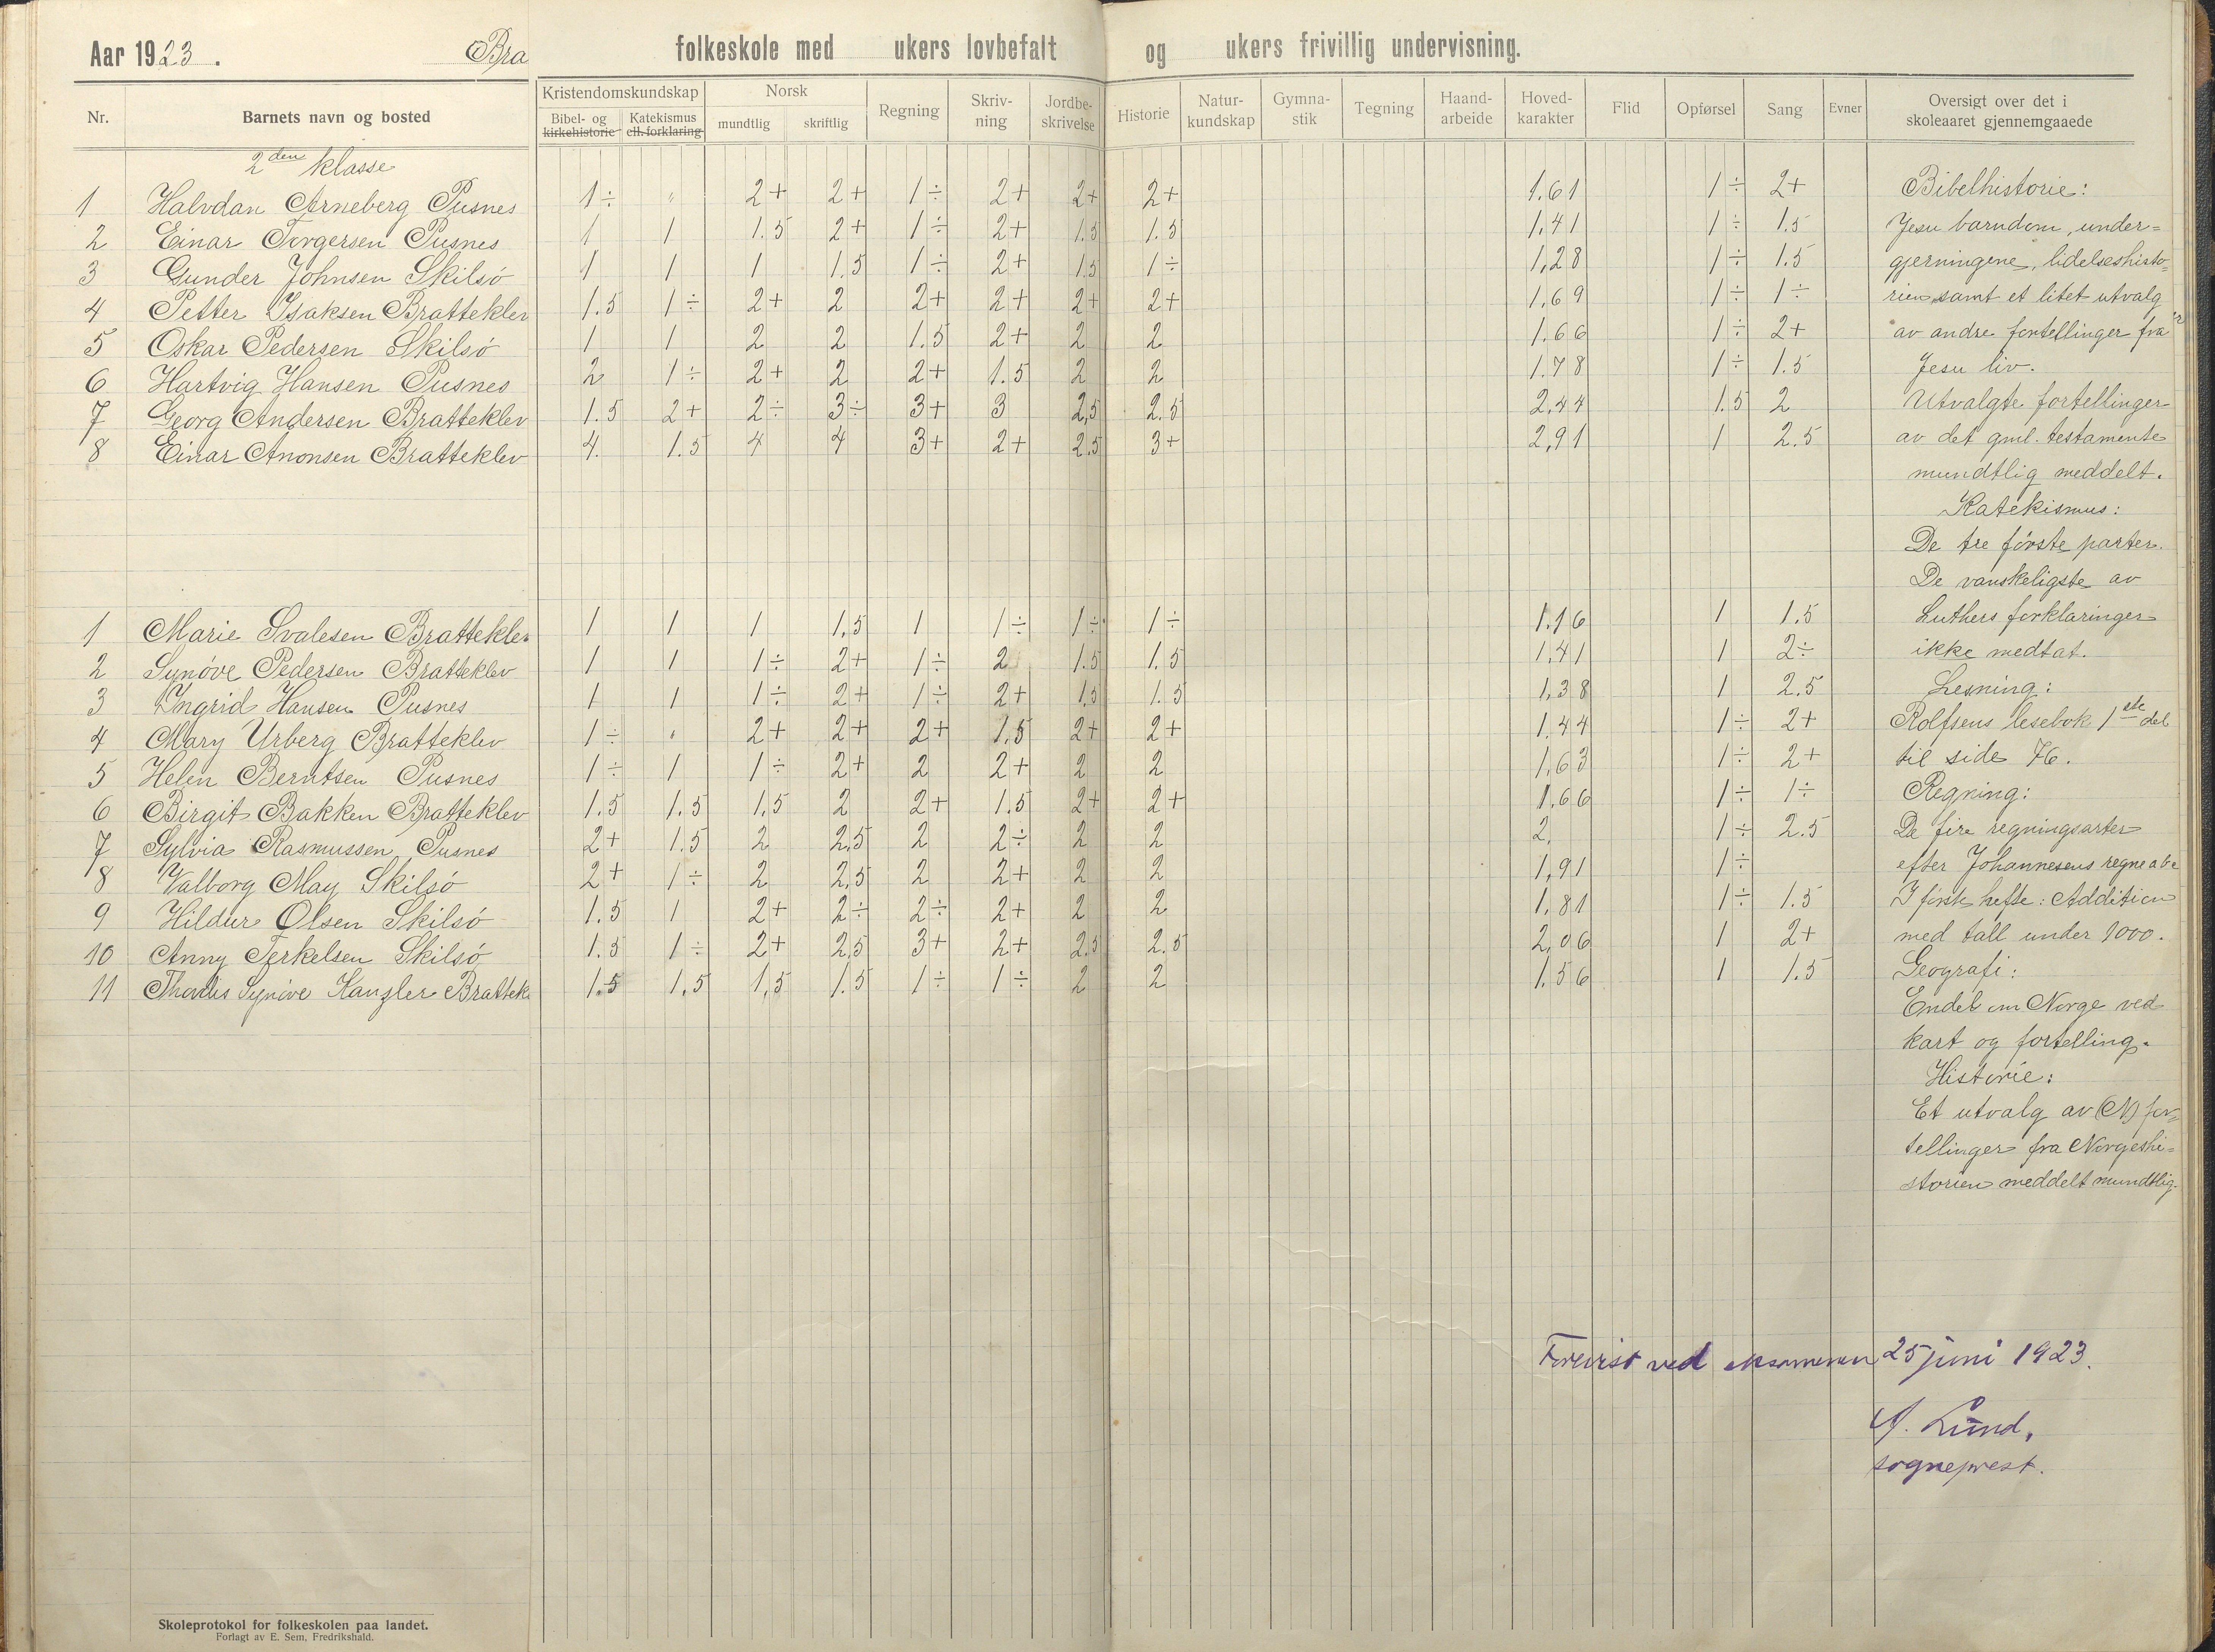 Aar 1923. Bra folkeskole med ukers lovbefalt og ukers frivillig undervisning.
Nr. Barnets navn og bosted Kristendomskundskap Bibel- og kirkehistorie Katekismus ell. forklaring Norsk mundtlig skriftlig Regning Skriv-ning Jordbe-skrivelse Historie Natur-kundskap Gymna-stik Tegning Haand-arbeide Hoved-karakter Flid Opførsel Sang Evner Oversigt over det i skoleaaret gjennemgaaede
2den klasse
1 Halvdan Arneberg Pusnes 1÷ " 2+ 2+ 1÷ 2+ 2+ 2+ 1.61 1÷ 2+ Bibelhistorie:
2 Einar Torgersen Pusnes 1 1 1.5 2+ 1÷ 2+ 1.5 1.5 1,41 1÷ 1.5 Jesu barndom, under=
3 Gunder Johnsen Skilsö 1 1 1 1.5 1÷ 2+ 1.5 1÷ 1,28 1÷ 1.5 gjerningene, lidelseshisto=
4 Petter Isaksen Bratteklev 1.5 1÷ 2+ 2 2+ 2+ 2+ 2+ 1,69 1÷ 1÷ rien samt et litet utvalg
5 Oskar Pedersen Skilsö 1 1 2 2 1.5 2+ 2 2 1.66 1÷ 2+ av andre fortellinger fra
6 Hartvig Hansen Pusnes 2 1÷ 2+ 2 2+ 1.5 2 2 1.78 1÷ 1.5 Jesu liv.
7 Georg Andersen Bratteklev 1.5 2+ 2÷ 3÷ 3+ 3 2,5 2.5 2,44 1.5 2 Utvalgte fortellinger
8 Einar Anonsen Bratteklev 4. 1.5 4 4 3+ 2+ 2.5 3+ 2,91 1 2.5 av det gml. testamente
mundtlig meddelt.
Katekismus:
De tre första parter.
De vanskeligste av
1 Marie Svalesen Bratteklev 1 1 1 1,5 1 1÷ 1÷ 1÷ 1.16 1 1.5 Luthers forklaringer
2 Synöve Pedersen Bratteklev 1 1 1÷ 2+ 1÷ 2 1.5 1.5 1,41 1 2÷ ikke medtat.
3 Ingrid Hansen Pusnes 1 1 1÷ 2+ 1÷ 2+ 1,5 1.5 1,38 1 2.5 Lesning:
4 Mary Urberg Bratteklev 1÷ " 2+ 2+ 2+ 1,5 2+ 2+ 1.44 1÷ 2+ Rolfsens lesebok 1ste del
5 Helen Berntsen Pusnes 1÷ 1 1÷ 2+ 2 2+ 2 2 1,63 1÷ 2+ til side 76.
6 Birgit Bakken Bratteklev 1.5 1.5 1,5 2 2+ 1.5 2+ 2+ 1,66 1÷ 1÷ Regning:
7 Sylvia Rasmussen Pusnes 2+ 1.5 2 2,5 2 2÷ 2 2 2. 1÷ 2.5 De fire regningsarter
8 Valborg May Skilsö 2+ 1÷ 2 2,5 2 2+ 2 2 1,91 1÷ efter Johannesens regneabc
9 Hildur Olsen Skilsö 1.5 1 2+ 2÷ 2÷ 2+ 2 2 1,81 1÷ 1.5 I förste hefte: Addition
10 Anny Terkelsen Skilsö 1.5 1÷ 2+ 2,5 3+ 2+ 2.5 2.5 2,06 1 2+ med tall under 1000.
11 Synöve Kanzler Brattek. 1.5 1,5 1,5 1.5 1÷ 1÷ 2 2 1.56 1 1.5 Geografi:
Endel om Norge ved
kart og fortelling.
Historie:
Et utvalg av (N) for=
tellinger fra Norgeshi=
storien meddelt mundtlig.
Forevist ved eksamenen 25 juni 1923.
A. Lund,
sogneprest.
Skoleprotokol for folkeskolen paa landet.
Forlagt av E. Sem, Fredrikshald.